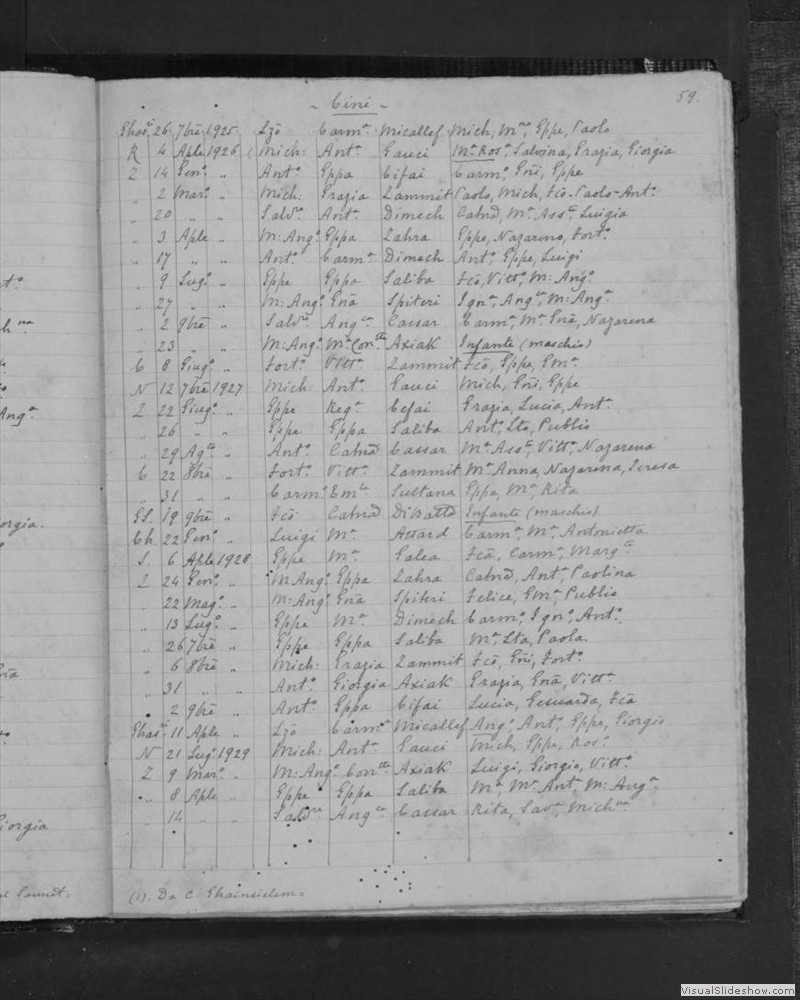 - Cini -
59.
Ghas.ri 26 7bre 1925 Lzo Carm.a Micallef Mich, M.no, Gppe, Paolo
R 4 Aple 1926 Mich: Ant.a Gauci M.a Ros.a, Salvina, Grazia, Giorgia
Z 14 Gen.o „ Ant.o Gppa Cifai Carm.o Gni, Gppe
„ 2 Mar.o „ Mich: Grazia Zammit Paolo, Mich, Fco-Paolo-Ant.o
„ 20 „ „ Salv.re Ant.a Dimech Catnd, M.a Ass.a Luigia
„ 3 Aple „ M: Ang.o Gppa Zahra Gppe, Nazareno, Fort.o
„ 17 „ „ Ant.o Carm.a Dimech Ant.o Gppe, Luigi
„ 9 Lug.o „ Gppe Gppa Saliba Fco, Vitt.o M: Ang.o
„ 27 „ „ M: Ang.o Gna Spiteri Ign.a, Ang.ca, M: Ang.a
„ 2 9bre „ Salv.re Ang.ca Cassar Carm.a, M.a Gna, Nazarena
„ 23 „ „ M: Ang.o M.a Con.tta Axiak Infante (maschio)
C 8 Giug.o „ Fort.o Vitt.a Zammit Fco, Gppe, Em.a
N 12 7bre 1927 Mich: Ant.a Gauci Mich, Gni, Gppe
Z 22 Giug.o „ Gppe Reg.a Cefai Grazia, Lucia, Ant.a
„ 26 „ „ Gppe Gppa Saliba Ant.o, Sto, Publio
„ 29 Ag.to „ Ant.o Catnd Cassar M.a Ass.a, Vitt.a, Nazarena
C 22 8bre „ Fort.o Vitt.a Zammit M.a Anna, Nazarena, Teresa
„ 31 „ „ Carm.o Em.la Sultana Gppa, M.a Rita
GS. 19 9bre „ Fco Catnd DiBatto Infante (maschio)
Ch. 22 Gen.o „ Luigi M.a Attard Carm.a, M.a, Antonietta
S. 6 Aple 1928 Gppe M.a Galea Fca, Carm.a, Marg.ta
Z 24 Gen.o „ M. Ang.o Gppa Zahra Catnd, Ant.a, Paolina
22 Mag.o „ M: Ang.o Gna Spiteri Felice, Em.a, Publio
„ 13 Lug.o „ Gppe M.a Dimech Carm.o, Ign.o, Ant.o
„ 26 7bre „ Gppe Gppa Saliba M.a Sta, Paola.
„ 6 8bre „ Mich: Grazia Zammit Fco, Gni, Fort.o
„ 31 „ „ Ant.o Giorgia Axiak Grazia, Gna, Vitt.a
„ 2 9bre „ Ant.o Gppa Cifai Lucia, Gesuarda, Fca
Ghas.ri 11 Aple „ Lzo Carm.a Micallef Ang.o, Ant.o, Gppe, Giorgio
N 21 Lug.o 1929 Mich: Ant.a Gauci Mich, Gppe, Ros.o
Z 9 Mar.o „ M: Ang.o Con.tta Axiak Luigi, Giorgio, Vitt.o
„ 8 Aple „ Gppe Gppa Saliba M.a, M.a Ant, M: Ang.a
„ 14 „ „ Salv.re Ang.ca Cassar Rita, Sav.a, Mich.na
(1). Da C. Ghainsielem.
VisualSlideshow.com